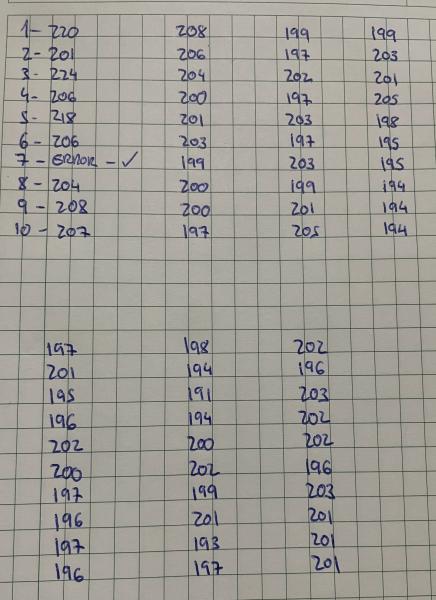 1- 220 208 199 199
2- 201 206 197 203
3- 224 204 202 201
4- 206 200 197 205
5- 218 201 203 198
6- 206 203 197 195
7- ERROR - ✓ 199 203 195
8- 204 200 199 194
9- 208 200 201 194
10- 207 197 205 194
197 198 202
201 194 196
195 191 203
196 194 202
202 200 202
200 202 196
197 199 203
196 201 201
197 193 201
196 197 201